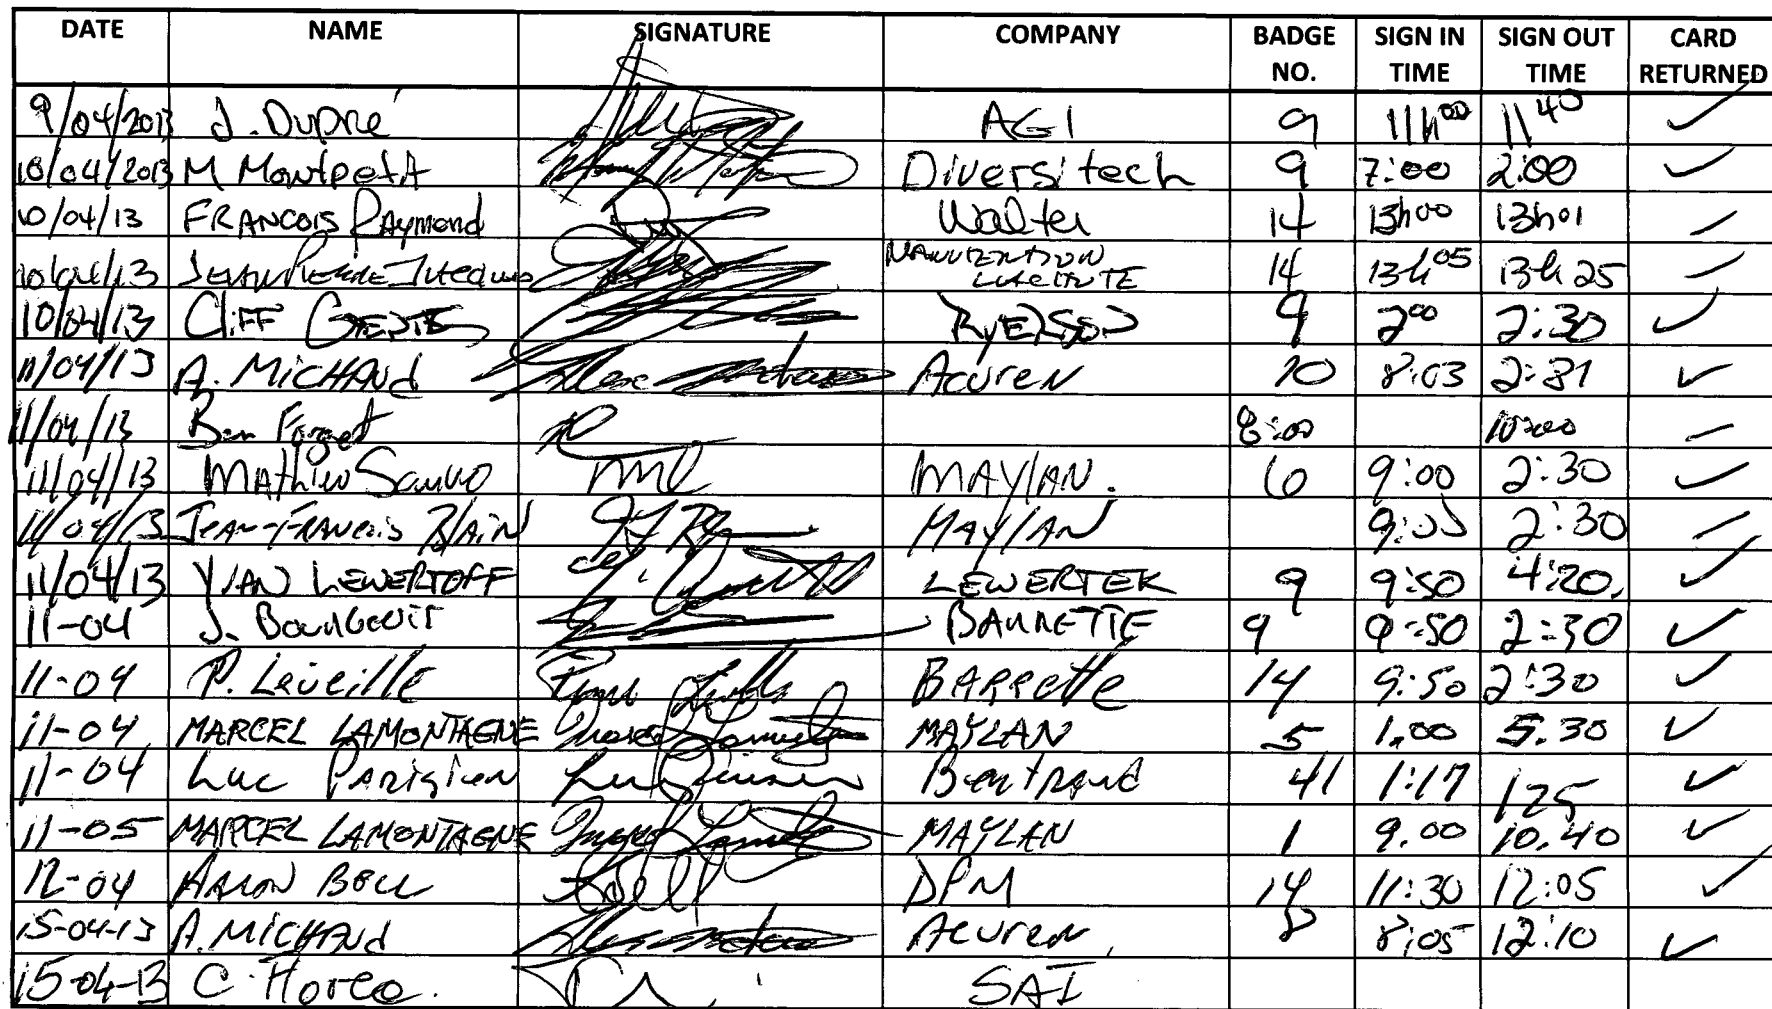 DATE NAME SIGNATURE COMPANY BADGE NO. SIGN IN TIME SIGN OUT TIME CARD RETURNED
9/04/2013 J. Dupré AGI 9 11h00 11 40 ✓
10/04/2013 M Montpetit Diversitech 9 7:00 2:00 ✓
10/04/13 FRANCOIS Raymond Walter 14 13h00 13h01 ✓
10/04/13 14 13h05 13h25 ✓
10/04/13 Cliff RYERSON 9 2 00 2:30 ✓
11/04/13 A. MICHAUD Acuren 10 8:03 2:31 ✓
11/04/13 Ben Forget 8:00 10:00 ✓
11/04/13 Mathieu MAYLAN. 6 9:00 2:30 ✓
11/04/13 JEAN-FRANCOIS BLAIN MAYLAN 9:00 2:30 ✓
11/04/13 YVAN LEWERTOFF LEWERTEK 9 9:50 4:20. ✓
11-04 J. BARRETTE 9 9:50 2:30 ✓
11-04 P. Léveillé BARRETTE 14 9:50 2:30 ✓
11-04 MARCEL LAMONTAGNE MAYLAN 5 1.00 5.30 ✓
11-04 Luc Parisien Bertrand 41 1:17 125 ✓
11-05 MARCEL LAMONTAGNE MAYLAN 1 9.00 10.40 ✓
12-04 AARON BELL DPM 14 11:30 12:05 ✓
15-04-13 A. MICHAUD Acuren 8 8:05 12:10 ✓
15-04-13 C. SAI